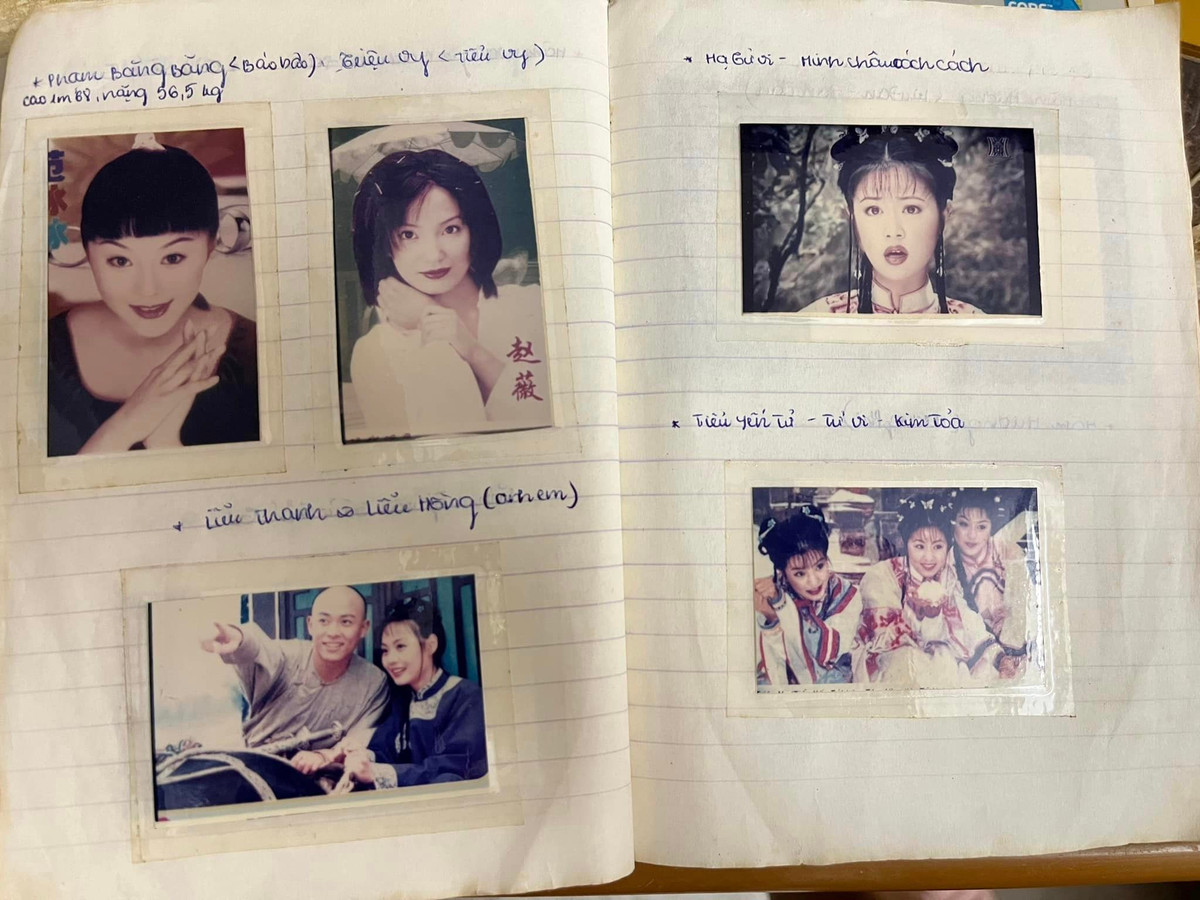 * Phạm Băng Băng <Báo báo) Triệu Vy < Tiểu Vy )
cao 1m68, nặng 56,5 kg
范
冰
冰
赵
薇
* Liễu Thanh ∞ Liễu Hồng (anh em)
CORE
* Hạ Tử Vi - Minh Châu cách cách
* Tiểu Yến Tử - Tử Vi - Kim Tỏa